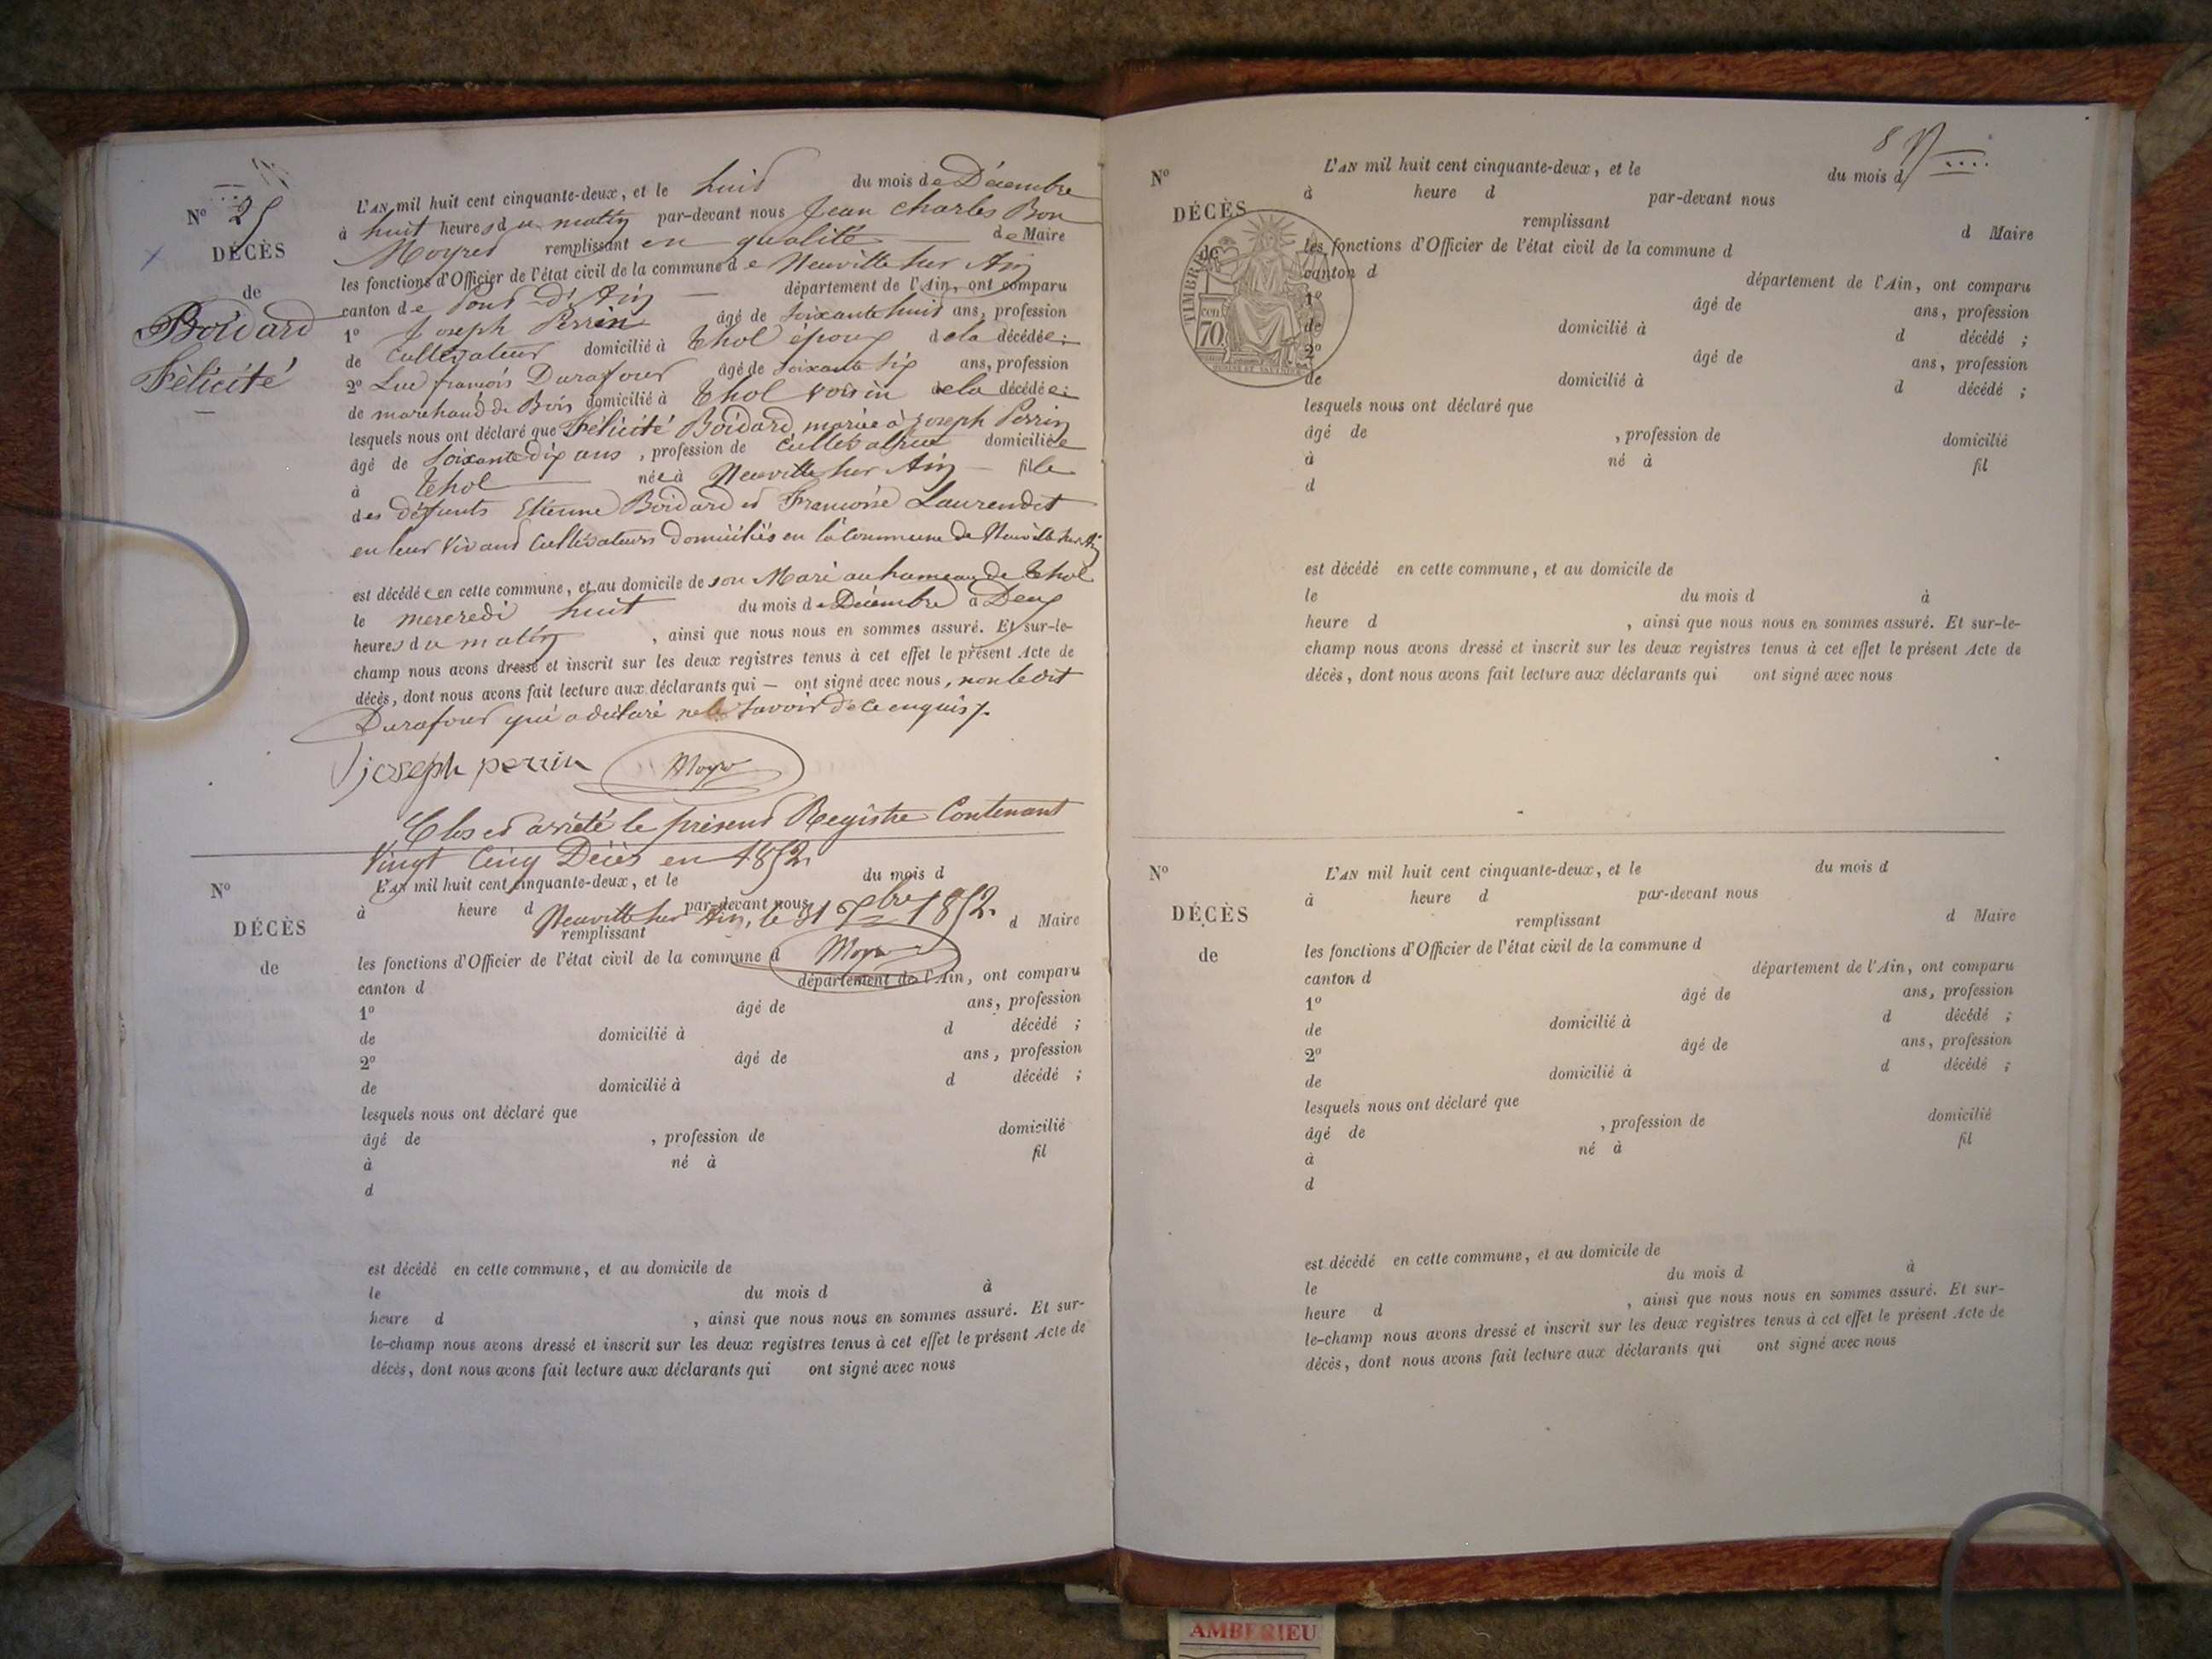 N° 25
DÉCÈS
de
Boidard
Félicité
L'AN mil huit cent cinquante-deux, et le huit du mois de Décembre
à huit heures du matin par-devant nous Jean Charles Bon
Moyret remplissant en qualité de Maire
les fonctions d'Officier de l'état civil de la commune de Neuville sur Ain
canton de Pont d'Ain département de l'Ain, ont comparu
1° Joseph Perrin âgé de soixante huit ans, profession
de Cultivateur domicilié à Thol époux de la décédée;
2° Luc françois Durafour âgé de soixante six ans, profession
de marchand de Bois domicilié à Thol voisin de la décédée;
lesquels nous ont déclaré que Félicité Boidard, mariée à joseph Perrin
âgé de soixante dix ans, profession de cultivatrice domiciliée
à Thol née à Neuville sur Ain fille
des défunts Etienne Boidard et Francoise Laurendet
en leur vivant Cultivateurs domiciliés en la Commune de Neuville sur Ain
est décédée en cette commune, et au domicile de son Mari au hameau de Thol
le mercredi huit du mois de Décembre à Deux
heures du matin, ainsi que nous nous en sommes assuré. Et sur-le-
champ nous avons dressé et inscrit sur les deux registres tenus à cet effet le présent Acte de
décès, dont nous avons fait lecture aux déclarants qui — ont signé avec nous, non ledit
Durafour qui a déclaré ne le savoir de ce enquis.
joseph perrin
Clos et arrêté le présent Registre Contenant
Vingt Cinq Décès en 1852.
Neuville sur Ain, le 31 Xbre 1852.
N°
DÉCÈS
de
L'AN mil huit cent cinquante-deux, et le du mois d
à heure d par-devant nous
remplissant d Maire
les fonctions d'Officier de l'état civil de la commune d
canton d département de l'Ain, ont comparu
1° âgé de ans, profession
de domicilié à d décédé ;
2° âgé de ans, profession
de domicilié à d décédé ;
lesquels nous ont déclaré que
âgé de , profession de domicilié
à né à fil
d
est décédé en cette commune, et au domicile de
le du mois d à
heure d , ainsi que nous nous en sommes assuré. Et sur-
le-champ nous avons dressé et inscrit sur les deux registres tenus à cet effet le présent Acte de
décès, dont nous avons fait lecture aux déclarants qui ont signé avec nous
N°
DÉCÈS
de
TIMBRE
cen
70
L'AN mil huit cent cinquante-deux, et le du mois d
à heure d par-devant nous
remplissant d Maire
les fonctions d'Officier de l'état civil de la commune d
canton d département de l'Ain, ont comparu
1° âgé de ans, profession
de domicilié à d décédé ;
2° âgé de ans, profession
de domicilié à d décédé ;
lesquels nous ont déclaré que
âgé de , profession de domicilié
à né à fil
d
est décédé en cette commune, et au domicile de
le du mois d à
heure d , ainsi que nous nous en sommes assuré. Et sur-le-
champ nous avons dressé et inscrit sur les deux registres tenus à cet effet le présent Acte de
décès, dont nous avons fait lecture aux déclarants qui ont signé avec nous
N°
DÉCÈS
de
L'AN mil huit cent cinquante-deux, et le du mois d
à heure d par-devant nous
remplissant d Maire
les fonctions d'Officier de l'état civil de la commune d
canton d département de l'Ain, ont comparu
1° âgé de ans, profession
de domicilié à d décédé ;
2° âgé de ans, profession
de domicilié à d décédé ;
lesquels nous ont déclaré que
âgé de , profession de domicilié
à né à fil
d
est décédé en cette commune, et au domicile de
le du mois d à
heure d , ainsi que nous nous en sommes assuré. Et sur-
le-champ nous avons dressé et inscrit sur les deux registres tenus à cet effet le présent Acte de
décès, dont nous avons fait lecture aux déclarants qui ont signé avec nous
AMBERIEU